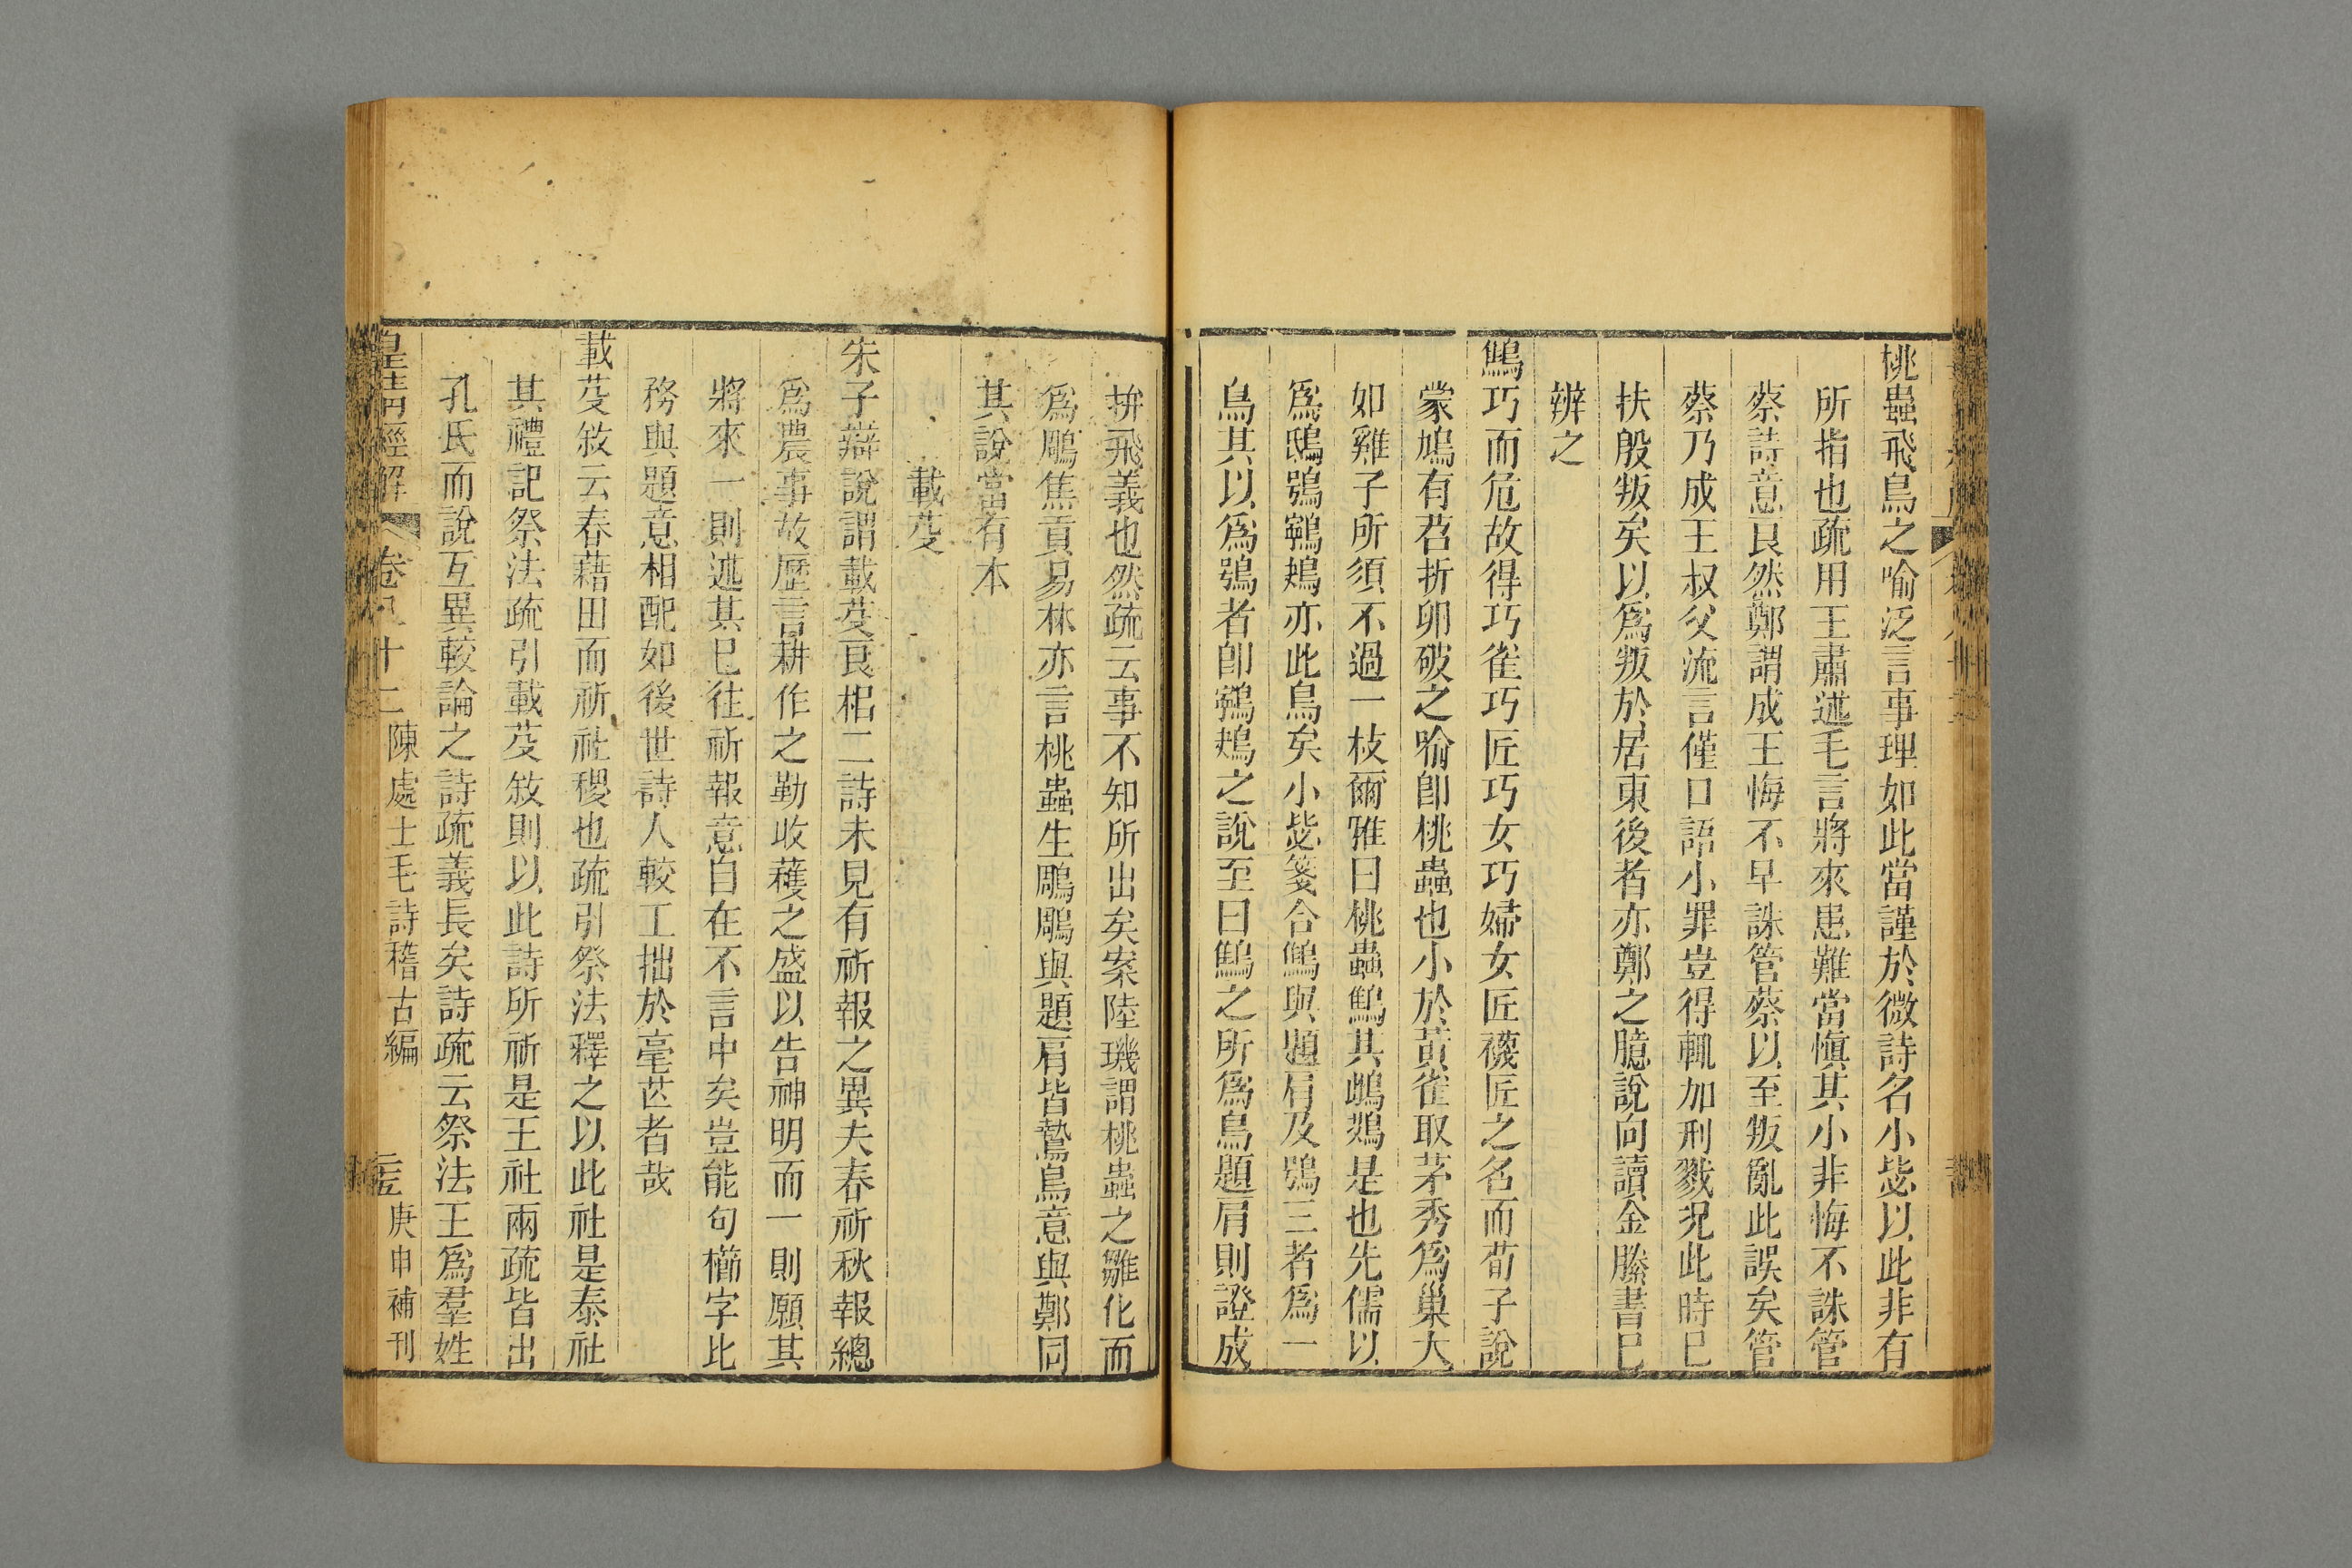 桃蟲飛鳥之喻泛言事理如此當謹於微詩名小毖以此非有
所指也疏用王肅述毛言將來患難當愼其小非悔不誅管
蔡詩意良然鄭謂成王悔不早誅管蔡以至叛亂此誤矣管
蔡乃成王叔父流言僅口語小罪豈得輒加刑戮況此時已
扶殷叛矣以爲叛於居東後者亦鄭之臆說向讀金縢書已
辨之
鷦巧而危故得巧雀巧匠巧女巧婦女匠襪匠之名而荀子說
蒙鳩有苕折卵破之喻卽桃蟲也小於黃雀取茅秀爲巢大
如雞子所須不過一枝爾雅曰桃蟲鷦其鴱是也先儒以
爲鴟鴞鸋鴂亦此鳥矣小毖箋合鷦與題肩及鴞三者爲一
鳥其以爲鴞者卽鸋鴂之說至曰鷦之所爲鳥題肩則證成
拚飛義也然疏云事不知所出矣案陸璣謂桃蟲之雛化而
爲鵰焦貢易林亦言桃蟲生鵰鵰與題肩皆鷙鳥意與鄭同
其說當有本
載芟
朱子辯說謂載芟良耜二詩未見有祈報之異夫春祈秋報總
爲農事故歷言耕作之勤收穫之盛以告神明而一則願其
將來一則述其已往祈報意自在不言中矣豈能句櫛字比
務與題意相配如後世詩人較工拙於毫芒者哉
載芟敘云春藉田而祈社稷也疏引祭法釋之以此社是泰社
其禮記祭法疏引載芟敘則以此詩所祈是王社兩疏皆出
孔氏而說互異較論之詩疏義長矣詩疏云祭法王爲羣姓
皇清經解 卷 十二 陳處士毛詩稽古編 庚申補刊